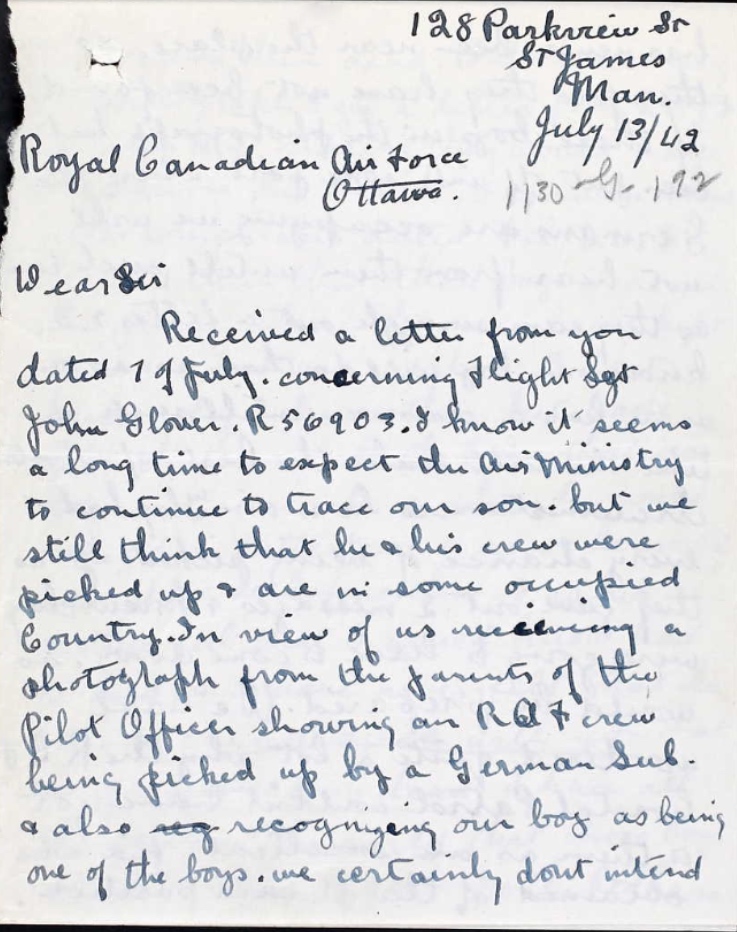 128 Parkview St
St James
Man.
July 13/42
Royal Canadian Air Force
Ottawa.
1130 - G - 192
Dear Sir
Received a letter from you
dated 7 of July. concerning Flight Sgt
John Glover. R56903. I know it seems
a long time to expect the Air Ministry
to continue to trace our son. but we
still think that he & his crew were
picked up & are in some occupied
Country. In view of us receiving a
photograph from the parents of the
Pilot Officer showing an RAF crew
being picked up by a German Sub.
& also recognizing our boy as being
one of the boys. we certainly dont intend